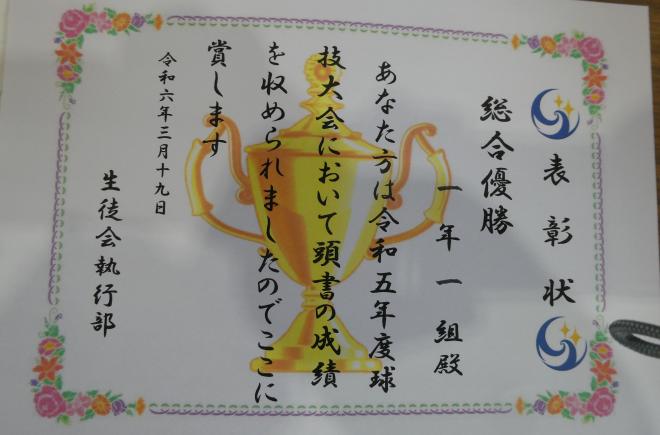 表彰状
総合優勝
一年一組殿
あなた方は令和五年度球
技大会において頭書の成績
を収められましたのでここに
賞します
令和六年三月十九日
生徒会執行部